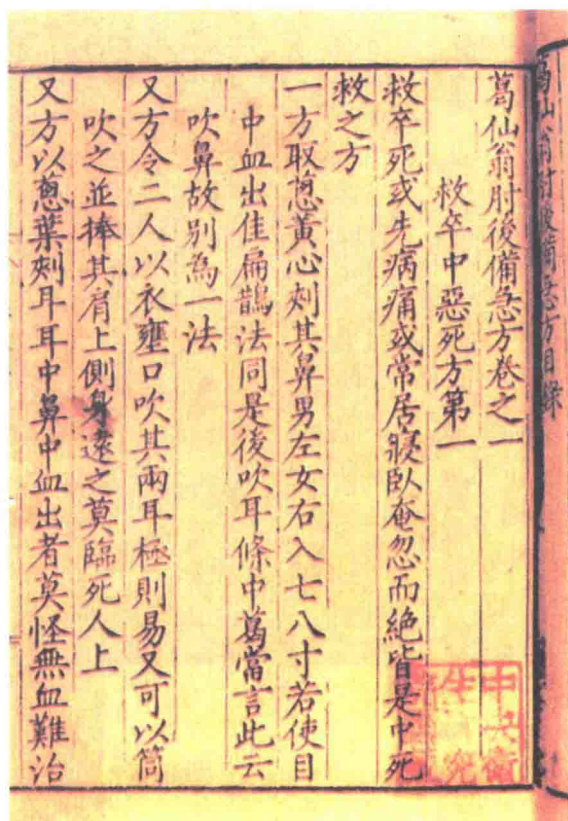 葛仙翁肘後備急方目錄
葛仙翁肘後備急方卷之一
救卒中惡死方第一
救卒死或先病痛或常居寢臥奄忽而絶皆是中死
救之方
一方取葱黃心刾其鼻男左女右入七八寸若使目
中血出佳扁鵲法同是後吹耳條中葛當言此云
吹鼻故別為一法
又方令二人以衣壅口吹其兩耳極則易又可以筒
吹之並捧其肩上側身遠之莫臨死人上
又方以葱葉刾耳耳中鼻中血出者莫怪無血難治
中央衛
生 究